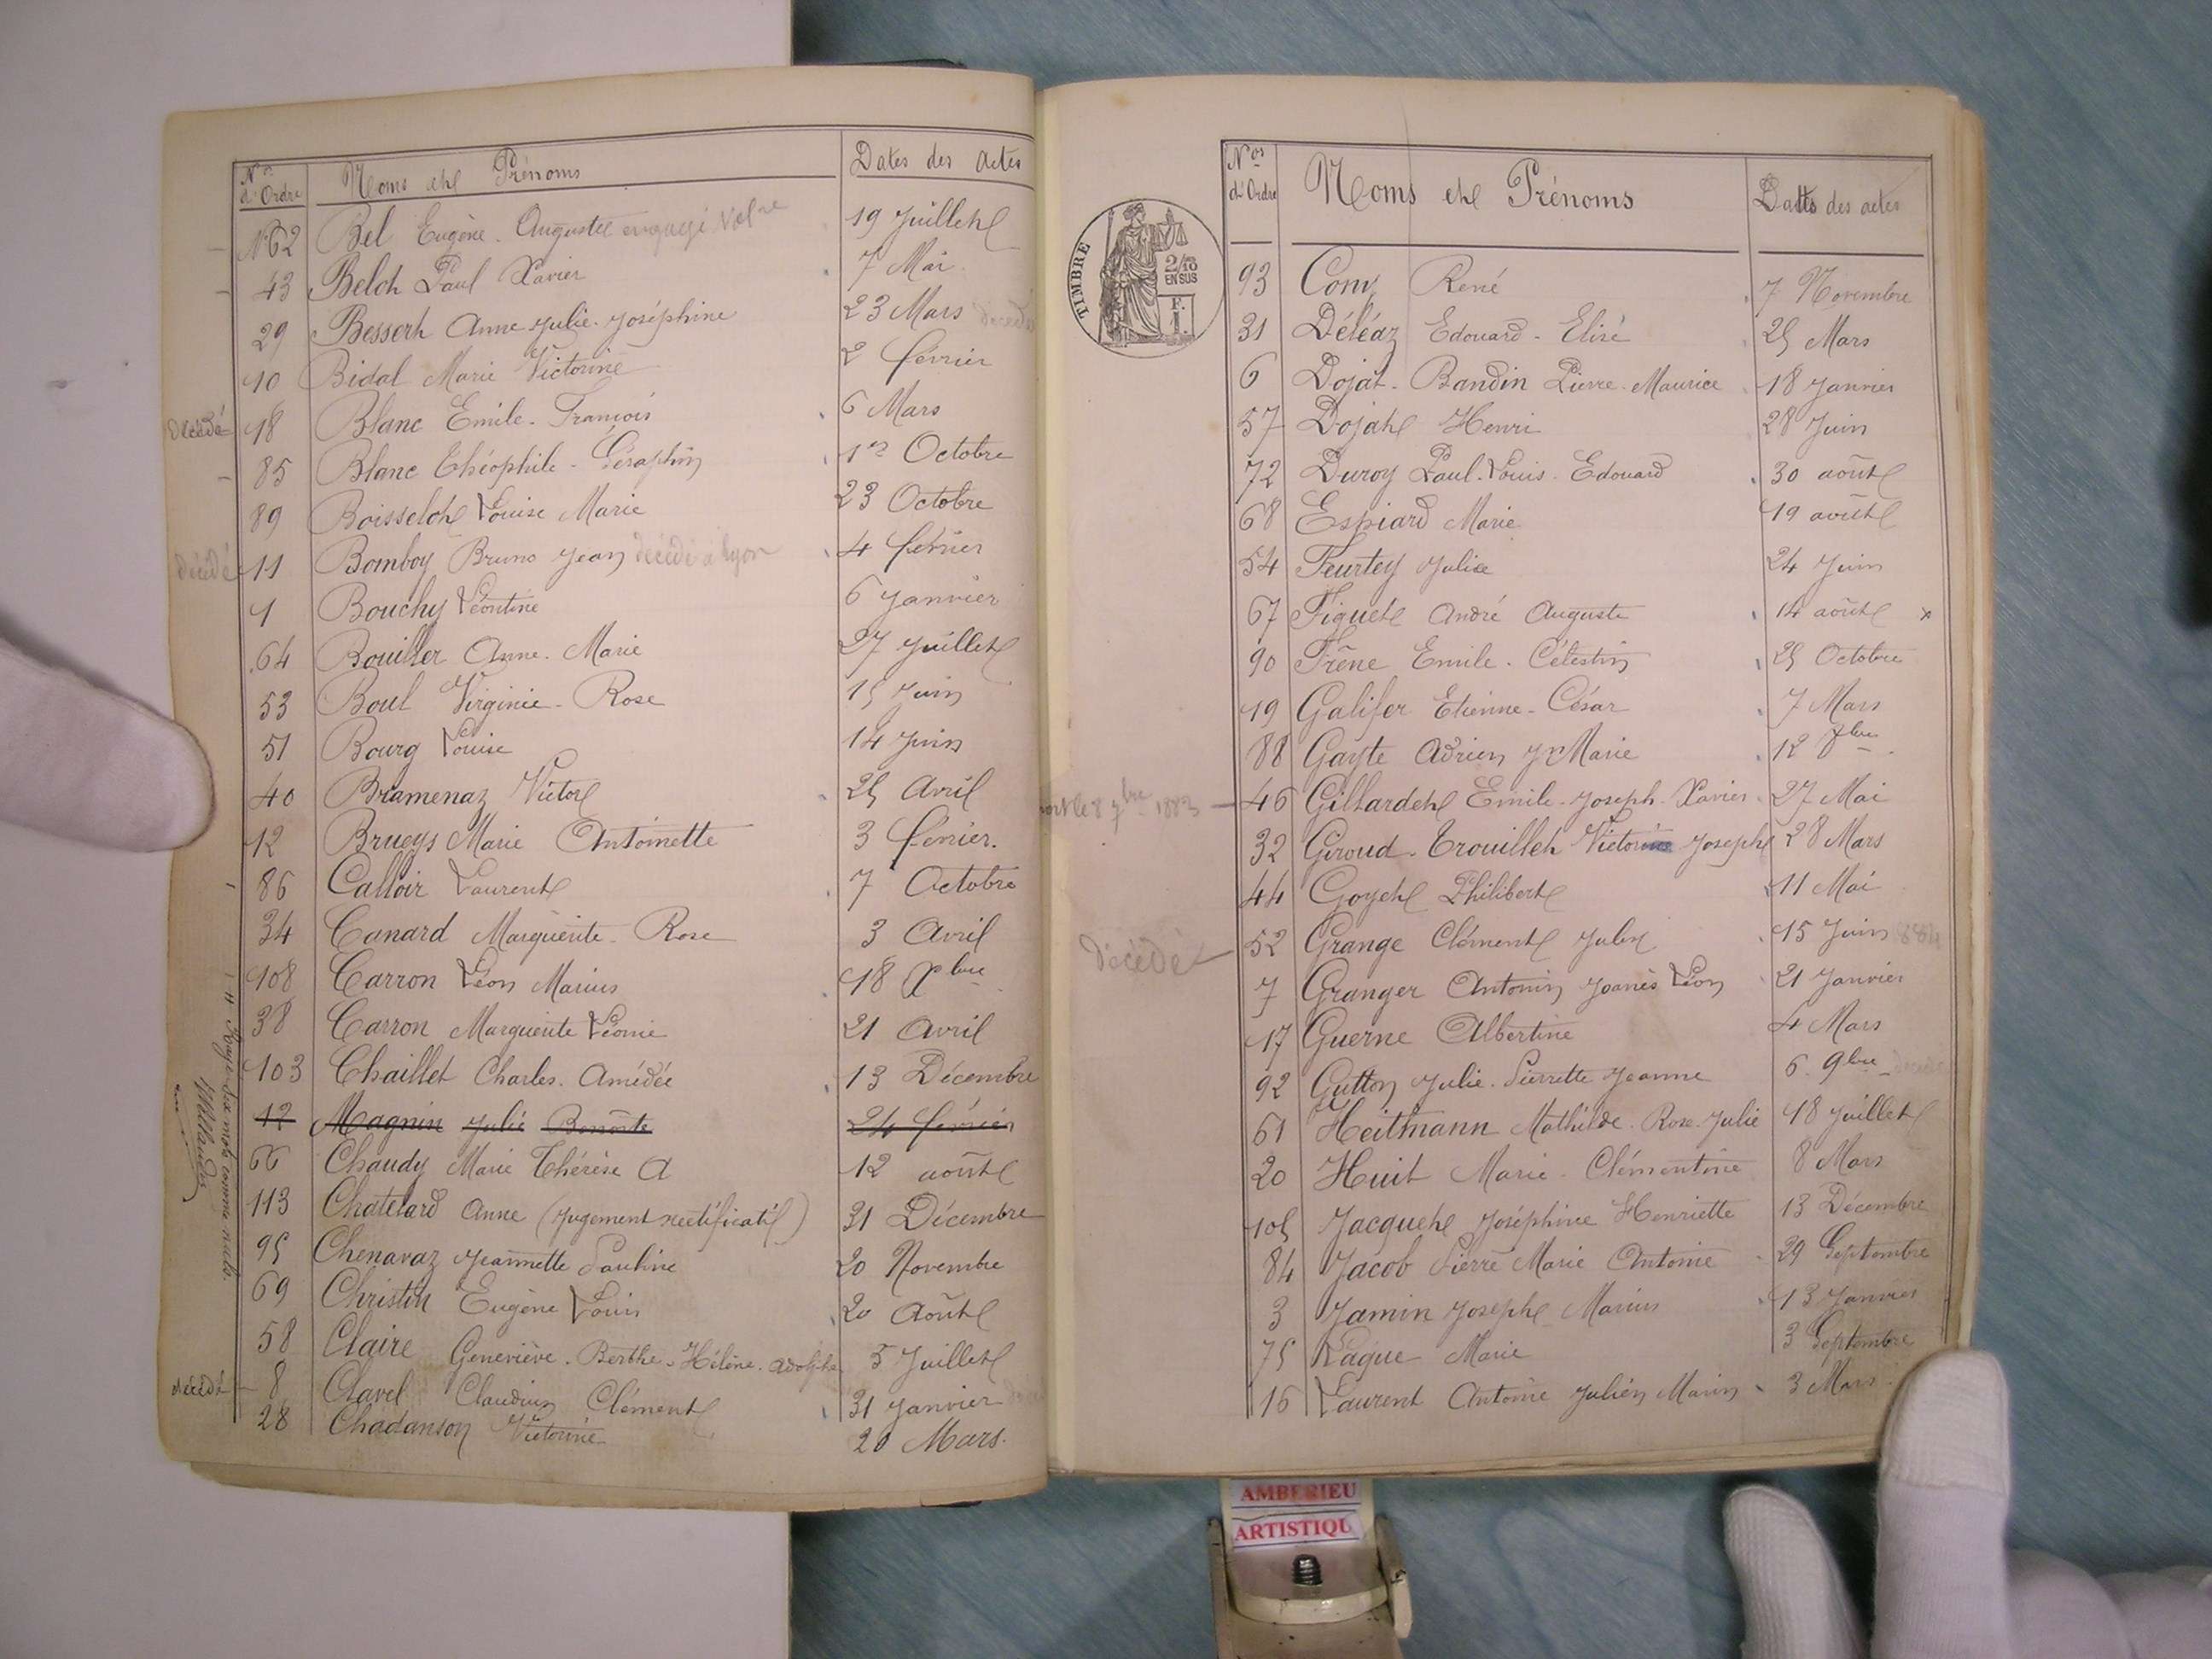 Nos d'Ordre Noms et Prénoms Dates des Actes
N°62 Bel Eugène. Auguste engagé Volre 19 Juillet
43 Belot Paul Xavier 7 Mai
29 Bessert Anne Julie. Joséphine 23 Mars décédé
10 Bidal Marie Victorine 2 février
décédé 18 Blanc Emile. François 6 Mars
85 Blanc Théophile - Séraphin 1er Octobre
89 Boisselot Louise Marie 23 Octobre
décédé 11 Bomboy Bruno Jean décédé à Lyon 4 février
1 Bouchy Léontine 6 Janvier
64 Bouiller Anne. Marie 27 Juillet
53 Boul Virginie - Rose 15 Juin
51 Bourg Louise 14 Juin
40 Bramenaz Victor 25 Avril
12 Brueys Marie Antoinette 3 février.
86 Calloir Laurent 7 Octobre
34 Canard Marguerite - Rose 3 Avril
108 Carron Léon Marius 18 Xbre
38 Carron Marguerite Léonie 21 Avril
103 Chaillet Charles. Amédée 13 Décembre
12 Magnin Julie 24 février
66 Chaudy Marie Thérèse A 12 août
113 Chatelard Anne (Jugement rectificatif) 31 Décembre
95 Chenavaz Jeannette Pauline 20 Novembre
69 Christin Eugène Louis 20 Août
58 Claire Geneviève. Berthe. Hélène. Adolphe 5 Juillet
décédé 8 Clavel Claudius Clément 31 Janvier
28 Chadanson Victorine 20 Mars.
mots comme nuls
TIMBRE
2/10
EN SUS
F.
1.
Nos d'Ordre Noms et Prénoms Dates des actes
93 Comy René 7 Novembre
31 Déléaz Edouard - Elisé 25 Mars
6 Dojat - Bandin Pierre. Maurice 18 Janvier
57 Dojat Henri 28 Juin
72 Duroy Paul. Louis. Edouard 30 août
68 Espiard Marie 19 août
54 Feurtey Julie 24 Juin
67 Figuet André Auguste 14 août x
90 Frêne Emile. Célestin 25 Octobre
19 Galifer Etienne - César 7 Mars
88 Gayte Adrien Jn Marie 12 8bre
mort le 8 7bre 1883 46 Gillardet Emile. Joseph. Xavier 27 Mai
32 Giroud - Trouillet Victor Joseph 28 Mars
44 Goyet Philibert 11 Mai
décédé 52 Grange Clément Jules 15 Juin 1884
7 Granger Antonin Joanès Léon 21 Janvier
17 Guerne Albertine 4 Mars
92 Gutton Julie. Pierrette Jeanne 6. 9bre décédé
61 Heitmann Mathilde. Rose. Julie 18 Juillet
20 Huit Marie - Clémentine 8 Mars
105 Jacquet Joséphine Henriette 13 Décembre
84 Jacob Pierre Marie Antoine 29 Septembre
3 Jamin Joseph Marius 13 Janvier
75 Lague Marie 3 Septembre
16 Laurent Antoine Julien Marin 3 Mars.
AMBERIEU
ARTISTIQU